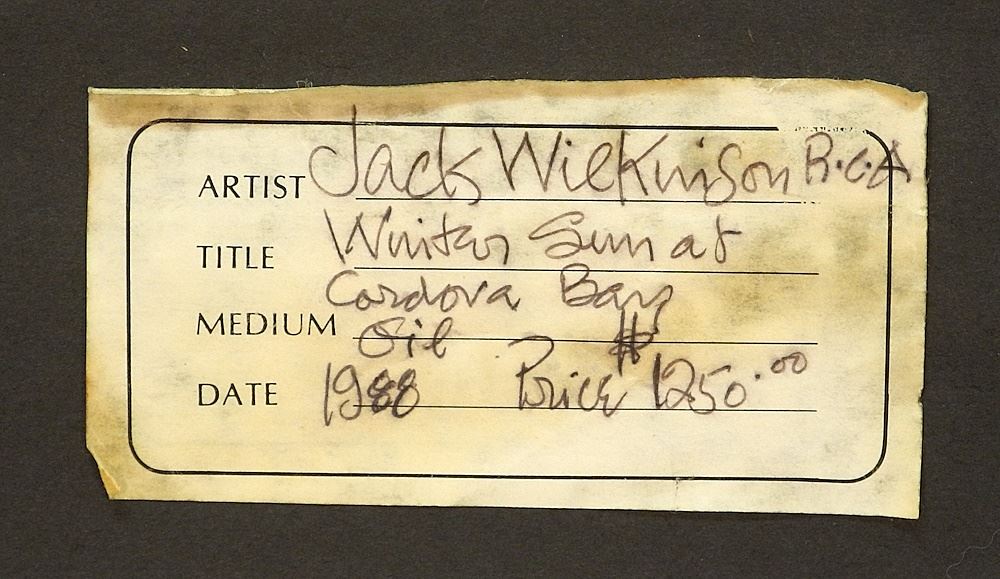 ARTIST Jack Wilkinson R.C.A
TITLE Winter Sun at
Cordova Bay
MEDIUM Oil
DATE 1988 Price $1250.00